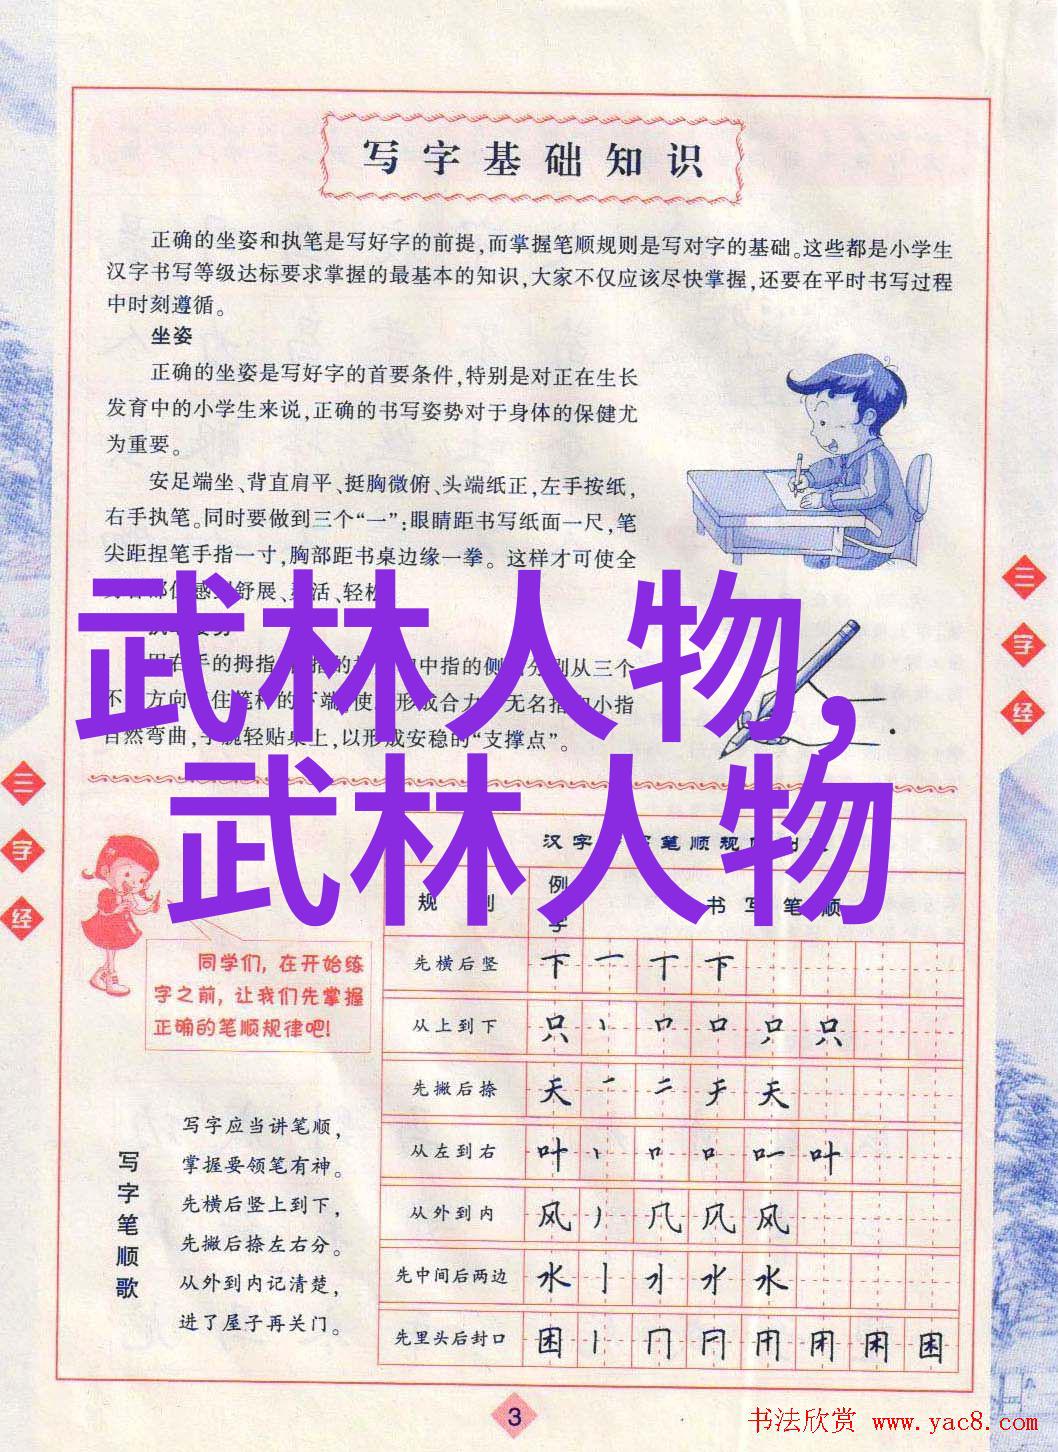 写字基础知识
正确的坐姿和执笔是写好字的前提,而掌握笔顺规则是写对字的基础。这些都是小学生
汉字书写等级达标要求掌握的最基本的知识,大家不仅应该尽快掌握,还要在平时书写过程
中时刻遵循。
坐姿
正确的坐姿是写好字的首要条件,特别是对正在生长
发育中的小学生来说,正确的书写姿势对于身体的保健尤
为重要。
安足端坐、背直肩平、挺胸微俯、头端纸正,左手按纸,
右手执笔。同时要做到三个“一”:眼睛距书写纸面一尺,笔
尖距捏笔手指一寸,胸部距书桌边缘一拳。这样才可使全
舒展、活、轻松
武林人物,
武林人物
手的拇指 的 中指的侧 分别从三个
不 方向 住笔杆的下端 使 形成合力 无名指 小指
自然弯曲,手腕轻贴桌上,以形成安稳的“支撑点”。
三字经
三字经
同学们,在开始练
字之前,让我们先掌握
正确的笔顺规律吧!
写字笔顺歌
写字应当讲笔顺,
掌握要领笔有神。
先横后竖上到下,
先撇后捺左右分。
从外到内记清楚,
进了屋子再关门。
汉字 笔顺规
规则 例字 书写笔顺
先横后竖 下 一 丅 下
从上到下 只 丨 口 口 只
先撇后捺 天 一 二 天
从左到右 叶 丨 口 口 叶
从外到内 风 丿 几 风 风
先中间后两边 水 亅 水
先里头后封口 困 丨 冂 困
3
书法欣赏 www.yac8.com